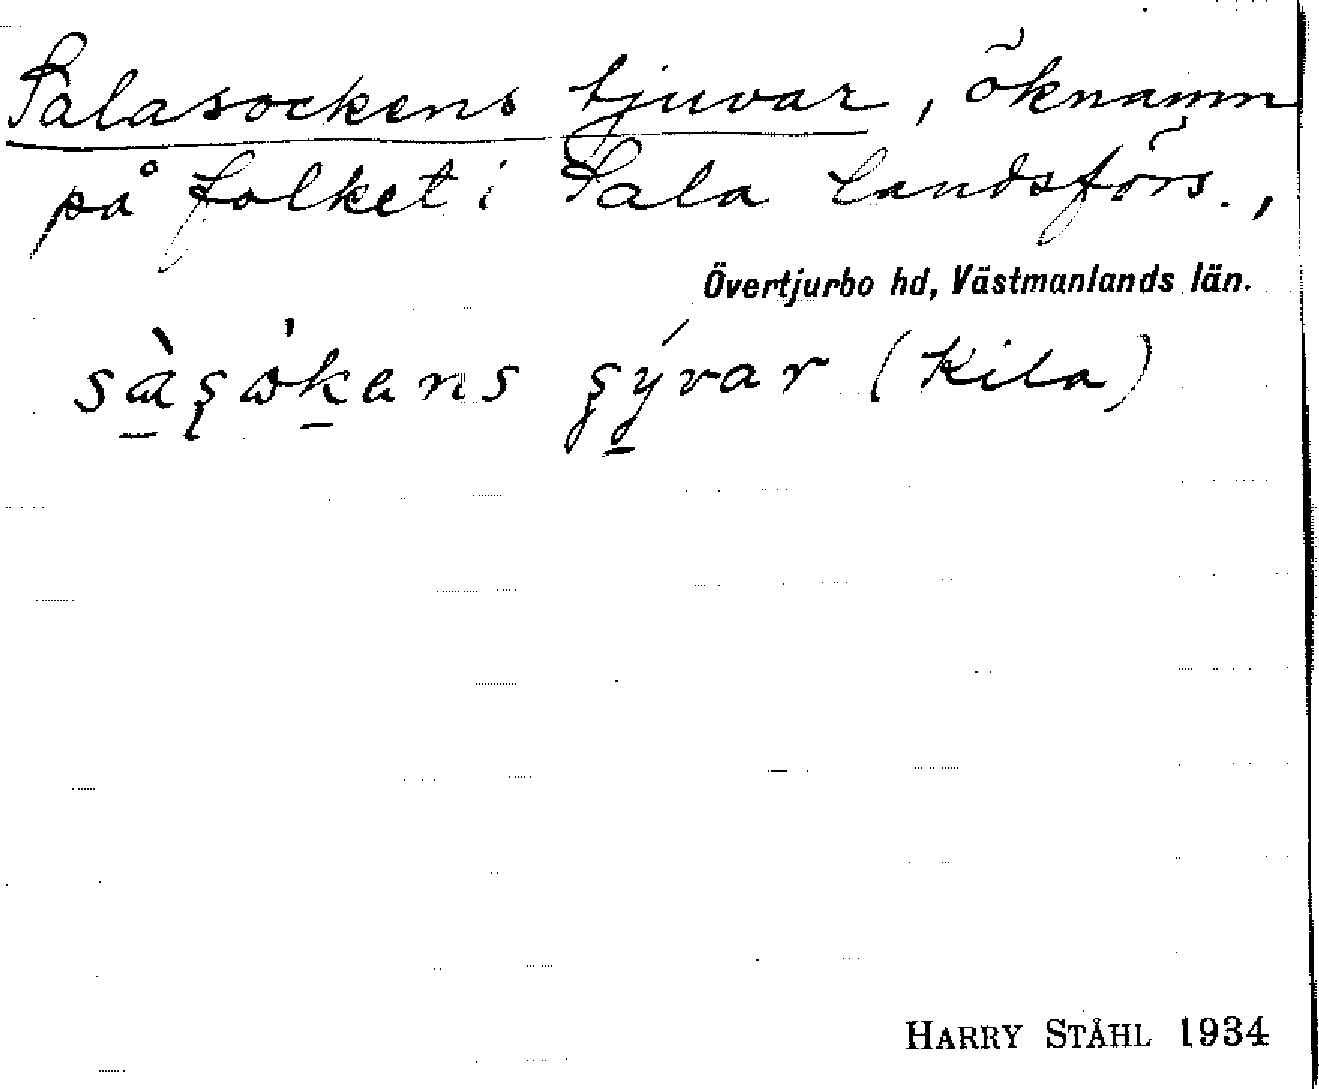 Salasockens tjuvar, öknamn
på folket i Sala landsförs.,
Övertjurbo hd, Västmanlands län.
(Kila)
HARRY STÅHL 1934